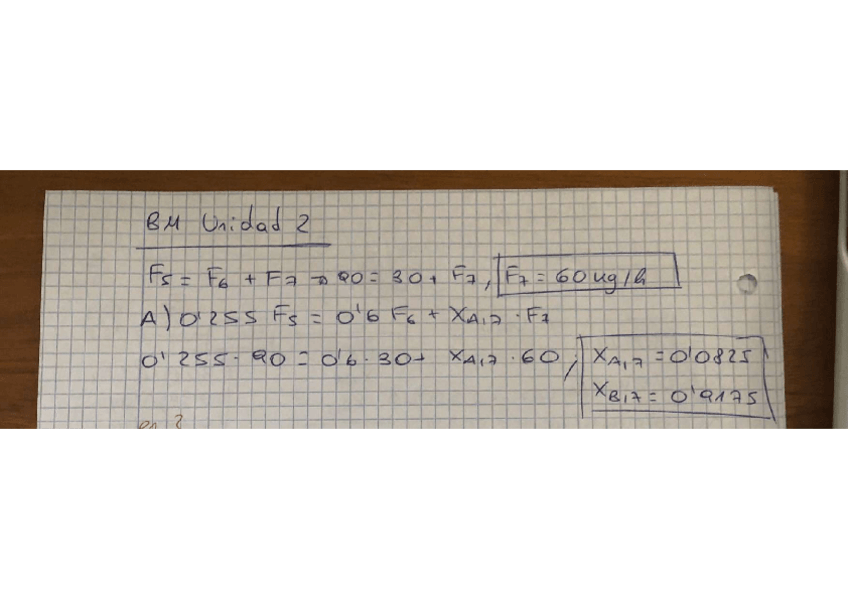 BM Unidad 2
F5 = F6 + F7 → 90 = 30 + F7, F7 = 60 kg/h
A) 0'255 F5 = 0'6 F6 + XA,7 · F7
0'255 · 90 = 0'6 · 30 + XA,7 · 60, XA,7 = 0'0825
XB,7 = 0'9175